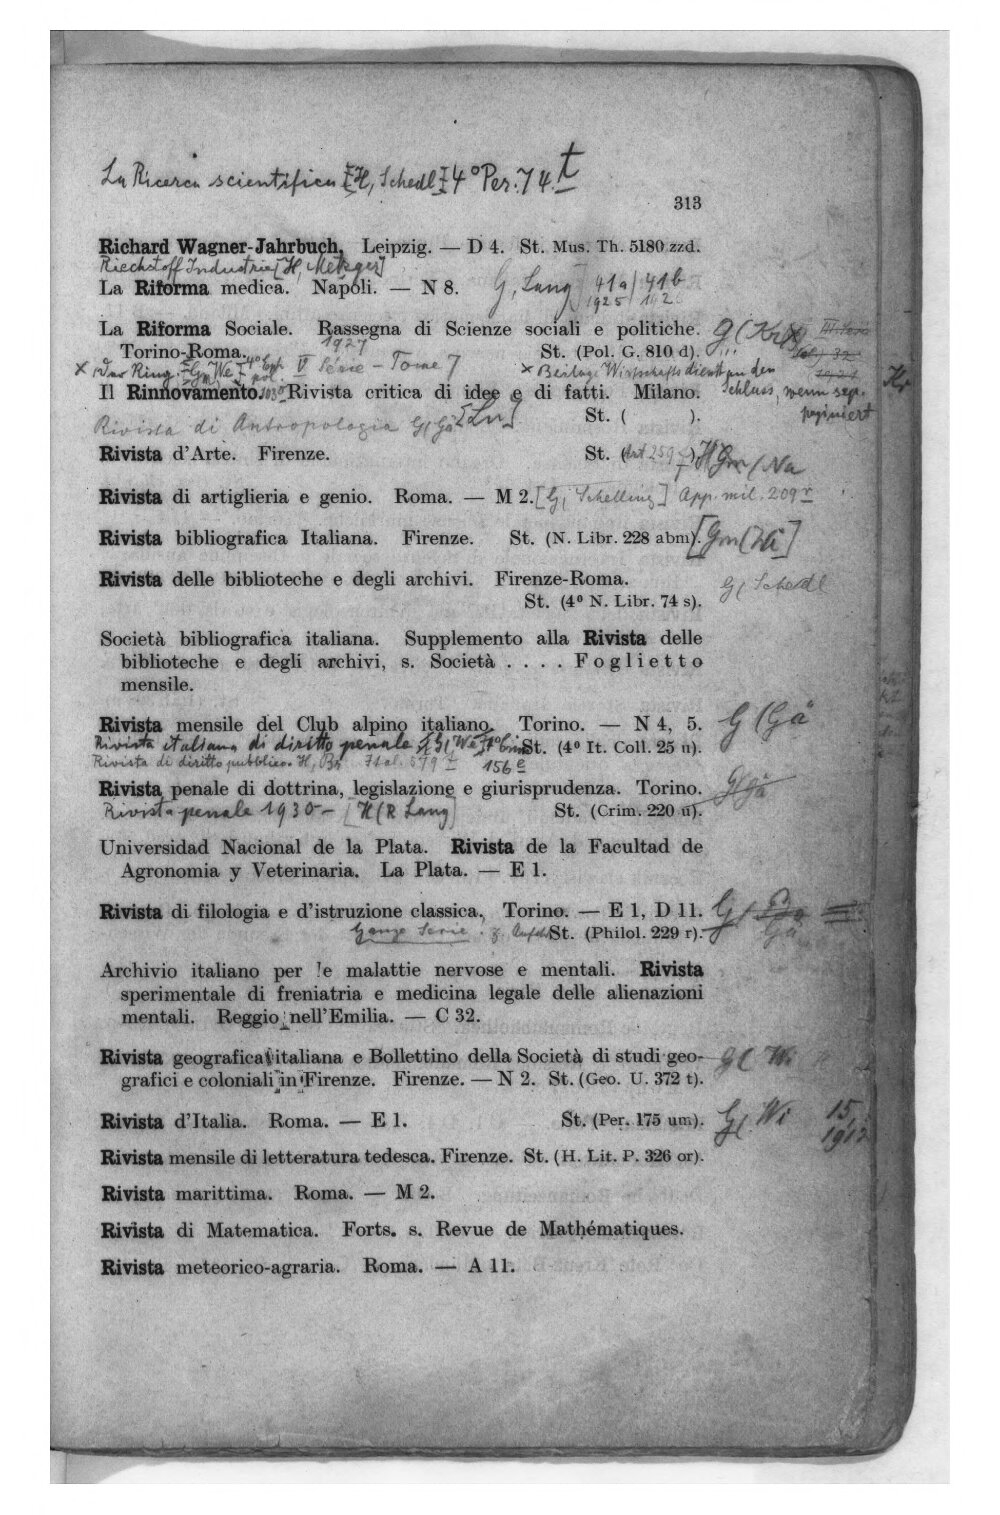 La Ricerca scientifica [H, Schedl] 4° Per. 74 t
313
Richard Wagner-Jahrbuch, Leipzig. — D 4. St. Mus. Th. 5180 zzd.
Riechstoff Industrie [H, Metzger]
La Riforma medica. Napoli. — N 8. G, Lang 41a / 41b
1925
La Riforma Sociale. Rassegna di Scienze sociali e politiche. G (
1927
Torino-Roma. St. (Pol. G. 810 d).
x Der Ring. V Série — Tome 7 x Beilage Wirtschaftsdienst an den
Schluss, wenn sep.
paginiert
Il Rinnovamento. Rivista critica di idee e di fatti. Milano.
St. ( ).
Rivista di Antropologia G/Gå
Rivista d'Arte. Firenze. St. (Art 259 )
Rivista di artiglieria e genio. Roma. — M 2. [G, Schelling] App. mil. 209 r
Rivista bibliografica Italiana. Firenze. St. (N. Libr. 228 abm).
Rivista delle biblioteche e degli archivi. Firenze-Roma. G( Schedl
St. (4º N. Libr. 74 s).
Società bibliografica italiana. Supplemento alla Rivista delle
biblioteche e degli archivi, s. Società . . . . Foglietto
mensile.
Rivista mensile del Club alpino italiano. Torino. — N 4, 5. G (Gå
Rivista italiana di diritto penale St. (4º It. Coll. 25 u).
Rivista di diritto pubblico. 156 e
Rivista penale di dottrina, legislazione e giurisprudenza. Torino. G/Gå
Rivista penale 1930— [H(R Lang] St. (Crim. 220 u).
Universidad Nacional de la Plata. Rivista de la Facultad de
Agronomia y Veterinaria. La Plata. — E 1.
Rivista di filologia e d'istruzione classica. Torino. — E 1, D 11. G/
Ganze Serie St. (Philol. 229 r). Gå
Archivio italiano per le malattie nervose e mentali. Rivista
sperimentale di freniatria e medicina legale delle alienazioni
mentali. Reggio nell'Emilia. — C 32.
Rivista geografica italiana e Bollettino della Società di studi geo- G( Wi
grafici e coloniali in Firenze. Firenze. — N 2. St. (Geo. U. 372 t).
Rivista d'Italia. Roma. — E 1. St. (Per. 175 um). G( Wi 15,
1912
Rivista mensile di letteratura tedesca. Firenze. St. (H. Lit. P. 326 or).
Rivista marittima. Roma. — M 2.
Rivista di Matematica. Forts. s. Revue de Mathématiques.
Rivista meteorico-agraria. Roma. — A 11.